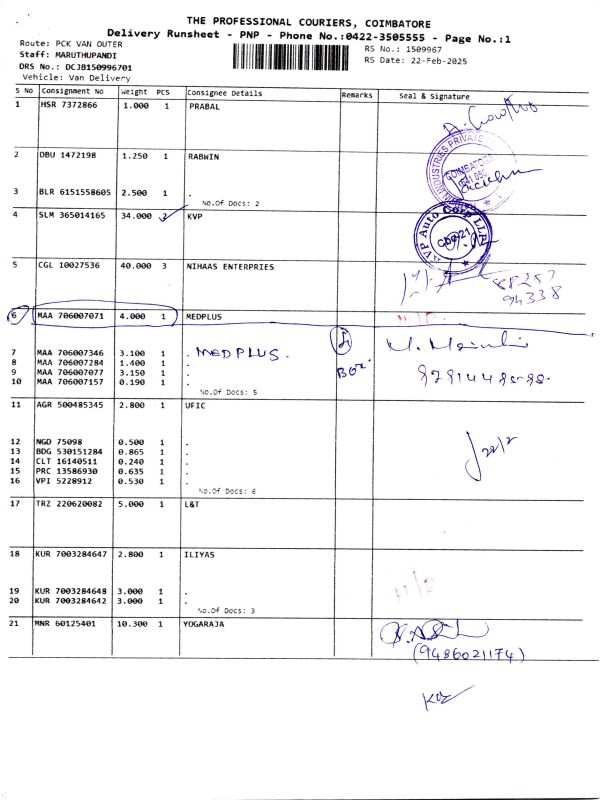 THE PROFESSIONAL COURIERS, COIMBATORE
Delivery Runsheet - PNP - Phone No.:0422-3505555 - Page No.:1
Route: PCK VAN OUTER RS No.: 1509967
Staff: MARUTHUPANDI RS Date: 22-Feb-2025
DRS No.: DCJB150996701
Vehicle: Van Delivery
S No Consignment No Weight PCS Consignee Details Remarks Seal & Signature
1 HSR 7372866 1.000 1 PRABAL
2 DBU 1472198 1.250 1 RABWIN
3 BLR 6151558605 2.500 1 .
No.Of Docs: 2
4 SLM 365014165 34.000 2 KVP
5 CGL 10027536 40.000 3 NIHAAS ENTERPRIES
6 MAA 706007071 4.000 1 MEDPLUS
7 MAA 706007346 3.100 1 . MEDPLUS.
8 MAA 706007284 1.400 1 .
9 MAA 706007077 3.150 1 .
10 MAA 706007157 0.190 1 .
No.Of Docs: 5
11 AGR 500485345 2.800 1 UFIC
12 NGD 75098 0.500 1 .
13 BDG 530151284 0.865 1 .
14 CLT 16140511 0.240 1 .
15 PRC 13586930 0.635 1 .
16 VPI 5228912 0.530 1 .
No.Of Docs: 6
17 TRZ 220620082 5.000 1 L&T
18 KUR 7003284647 2.800 1 ILIYAS
19 KUR 7003284648 3.000 1 .
20 KUR 7003284642 3.000 1 .
No.Of Docs: 3
21 MNR 60125401 10.300 1 YOGARAJA
(9486021174)